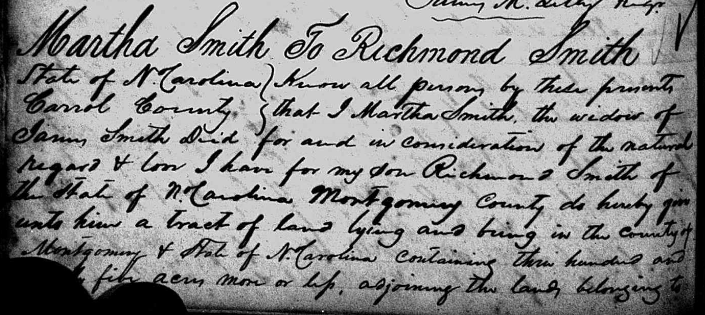 James M. Lilly Regr
Martha Smith To Richmond Smith
State of N Carolina } Know all persons by these presents
Carrol County } that I Martha Smith, the widow of
James Smith Decd for and in consideration of the natural
regard & love I have for my son Richmond Smith of
the State of N. Carolina Montgomery County do hereby give
unto him a tract of land lying and being in the county of
Montgomery & State of N. Carolina containing three hundred and
five acres more or less, adjoining the lands belonging to